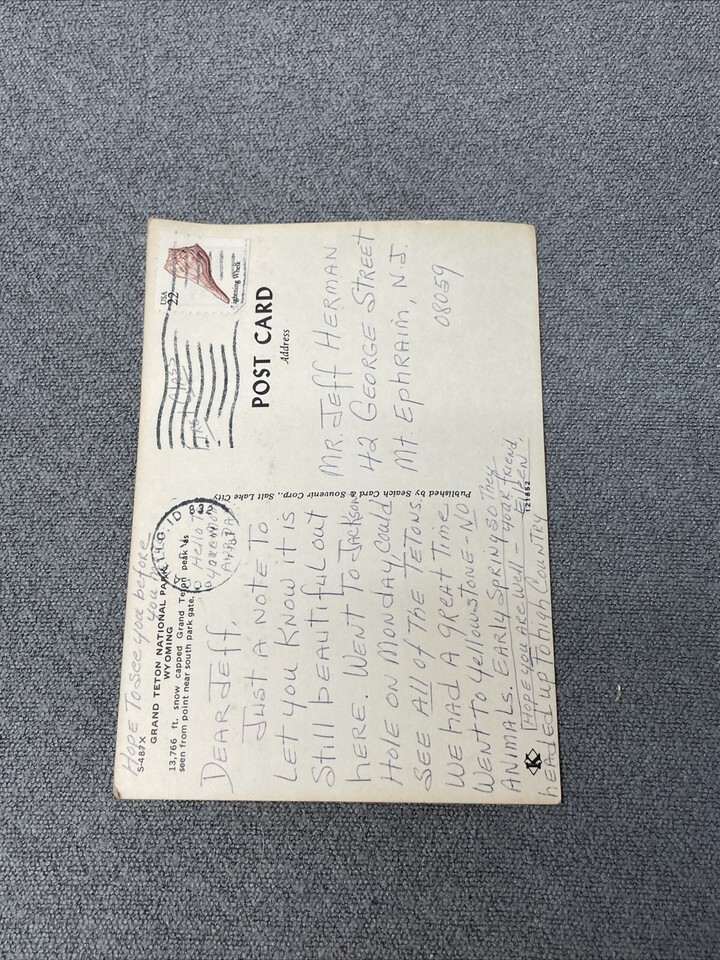 Hope To see you before
you
S-487X
GRAND TETON NATIONAL PARK
WYOMING
13,766 ft. snow capped Grand Teton peak as
seen from point near south park gate.
DEAR JEFF,
Just A NOTE TO
Let you Know it is
Still beautiful out
here. Went To JACKSON
HOLE ON MONDAY Could
See All of The TETONS.
We HAD A great Time
Went To Yellowstone - NO
ANIMALS. EARLY SPRING SO They
headed up To high Country
HOPE you ARE Well - your friend,
EILEEN.
Hello To
your mom
ID
832
USA
22
Lightning Whelk
First Class
POST CARD
Address
MR. JEFF HERMAN
42 GEORGE STREET
Mt EPHRAIM, N.J.
08059
Published by Seaich Card & Souvenir Corp., Salt Lake City
K
121652